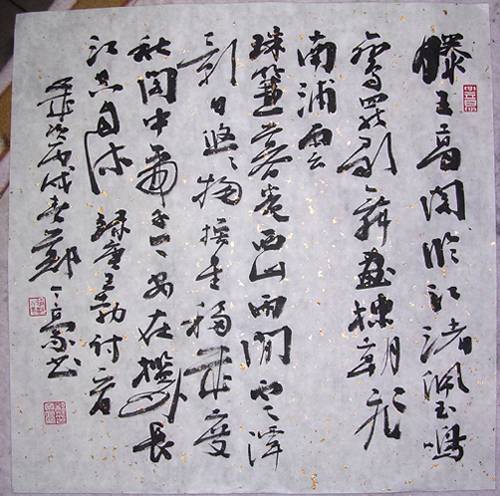 滕王高阁临江渚佩玉鸣
鸾罢歌舞画栋朝飞
南浦云
珠簾暮卷西山雨闲云潭
影日悠悠物换星移几度
秋阁中帝子今安在槛外长
江空自流 録唐王勃诗
岁次丙戌春郑书